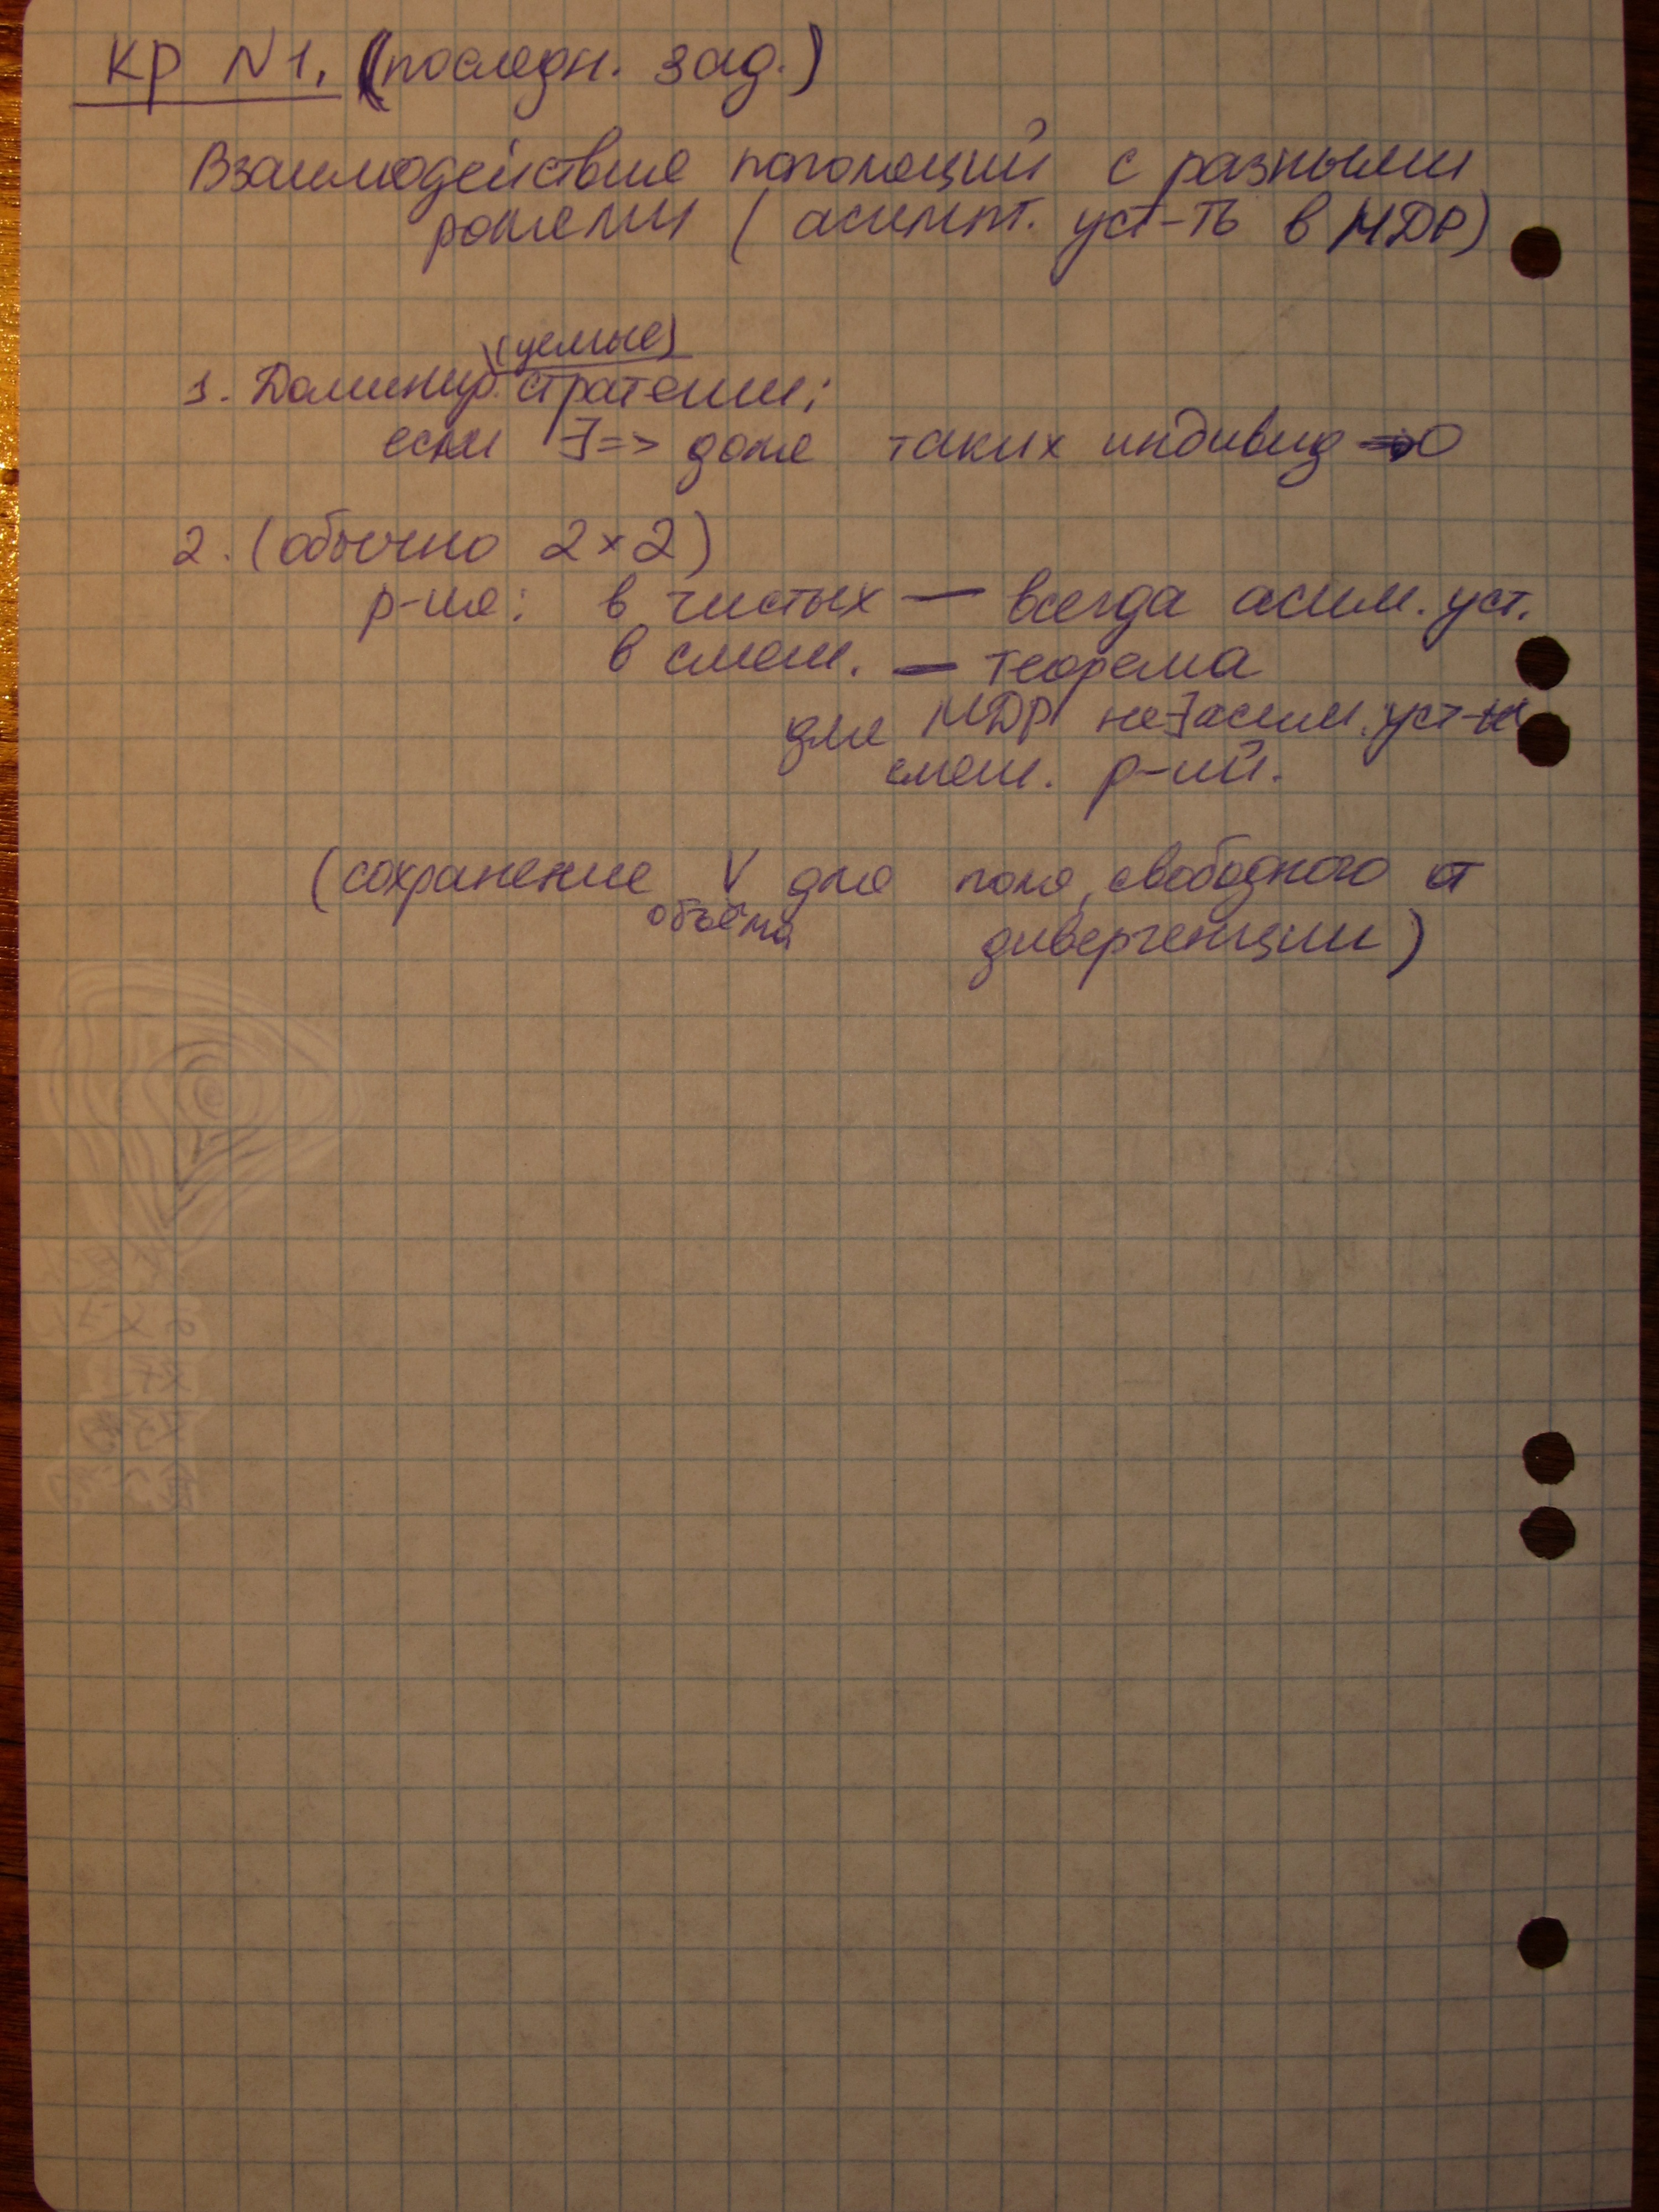 КР N1. (последн. зад.)
Взаимодействие популяций с разными
ролями (асимпт. уст-ть в МДР)
(уемые)
1. Доминир. стратегии:
если ∃ => доля таких индивид → 0
2. (обычно 2×2)
р-ия: в чистых — всегда асим. уст.
в смеш. — теорема
для МДР не ∃ асим. уст-х
смеш. р-ий.
(сохранение V для поля, свободного от
объёма дивергенции)